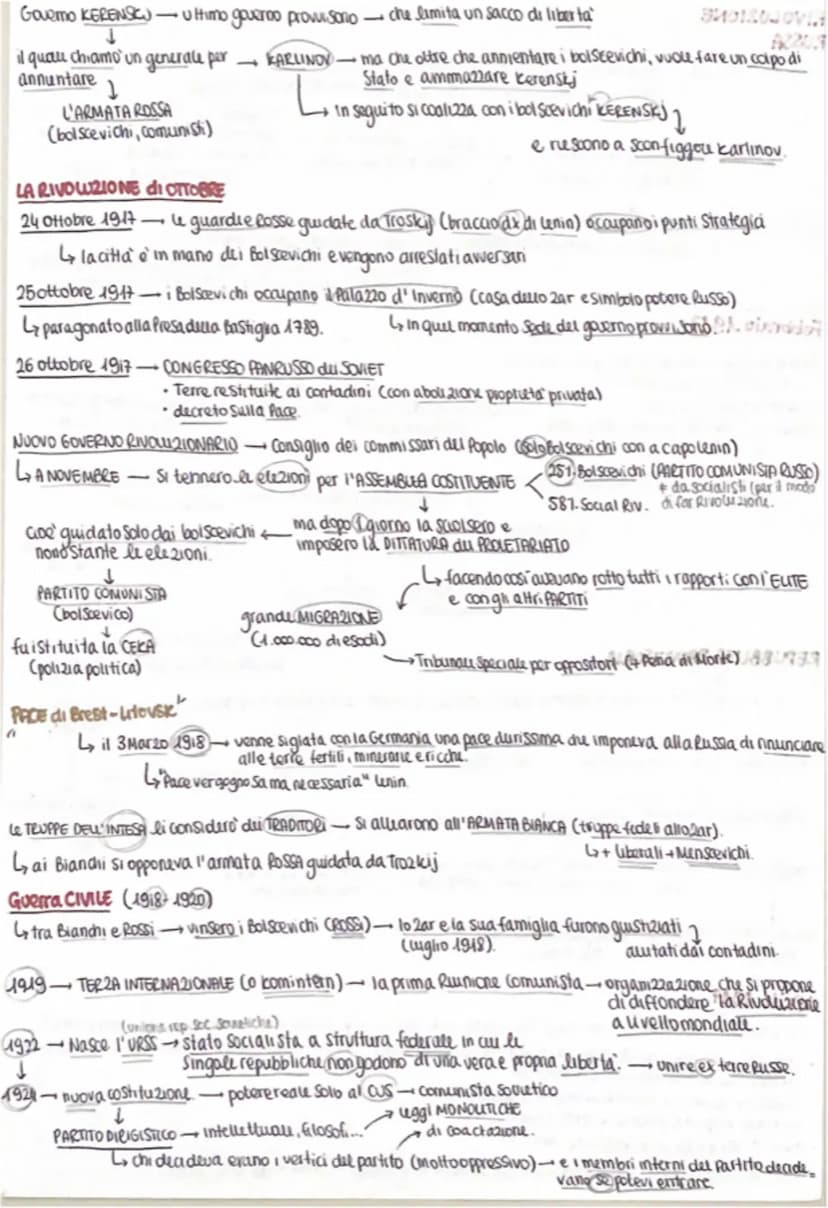 Governo KERENSKJ → ultimo governo provvisorio → che limita un sacco di libertà
il quale chiamò un generale per → KARLINOV → ma che oltre che annientare i bolscevichi, vuole fare un colpo di
annuntare
Stato e ammazzare Kerenskj
L'ARMATA ROSSA
(bolscevichi, comunisti)
↳ in seguito si coalizza con i bolscevichi KERENSKJ
e riescono a sconfiggere Karlinov.
LA RIVOLUZIONE di OTTOBRE
24 ottobre 1917 → le guardie Rosse guidate da Troskij (braccio dx di Lenin) occupano i punti strategici
↳ la città è in mano dei Bolscevichi e vengono arrestati avversari
25 ottobre 1917 → i Bolscevichi occupano il Palazzo d'Inverno (casa dello zar e simbolo potere Russo)
↳ paragonato alla Presa della Bastiglia 1789.
↳ In quel momento sede del governo provvisorio.
26 ottobre 1917 → CONGRESSO PANRUSSO dei SOVIET
• Terre restituite ai contadini (con abolizione proprietà privata)
• decreto sulla Pace.
NUOVO GOVERNO RIVOLUZIONARIO → Consiglio dei commissari del Popolo (solo Bolscevichi con a capo Lenin)
↳ A NOVEMBRE → Si tennero le elezioni per l'ASSEMBLEA COSTITUENTE
25%. Bolscevichi (PARTITO COMUNISTA RUSSO)
≠ da socialisti (per il modo
58%. Social Riv. di far Rivoluzione.
ma dopo 1 giorno la sciolsero e
imposero la DITTATURA del PROLETARIATO
cioè guidato solo dai bolscevichi
nonostante le elezioni.
↳ facendo così avevano rotto tutti i rapporti con l'ELITE
e con gli altri PARTITI
PARTITO COMUNISTA
(bolscevico)
grande MIGRAZIONE
(1.000.000 di esodi)
fu istituita la CEKA
(polizia politica)
→ Tribunale speciale per oppositori (+ Pena di Morte)
"PACE di Brest-Litovsk"
↳ il 3 Marzo 1918 → venne siglata con la Germania una pace durissima che imponeva alla Russia di rinunciare
alle terre fertili, minerarie e ricche.
↳ "Pace vergognosa ma necessaria" Lenin.
Le TRUPPE DELL'INTESA li considerò dei TRADITORI → Si allearono all'ARMATA BIANCA (truppe fedeli allo zar).
↳ + liberali + Menscevichi.
↳ ai Bianchi si opponeva l'armata ROSSA guidata da Trozkij
Guerra CIVILE (1918-1920)
↳ tra Bianchi e Rossi → vinsero i Bolscevichi (ROSSI) → lo zar e la sua famiglia furono giustiziati
(luglio 1918).
aiutati dai contadini.
1919 → TERZA INTERNAZIONALE (o komintern) → la prima Riunione Comunista → organizzazione che si propone
di diffondere la Rivoluzione
a livello mondiale.
(unione rep. soc. sovietiche)
1922 → Nasce l'URSS → stato Socialista a struttura federale in cui le
singole repubbliche non godono di una vera e propria libertà. → unire ex terre Russe.
1924 → nuova costituzione. → potere reale solo al CUS → comunista sovietico
PARTITO DIRIGISTICO → intellettuali, filosofi...
→ leggi MONOLITICHE
→ di coactazione.
↳ chi decideva erano i vertici del partito (molto oppressivo) → e i membri interni del Partito decide-
vano se potevi entrare.